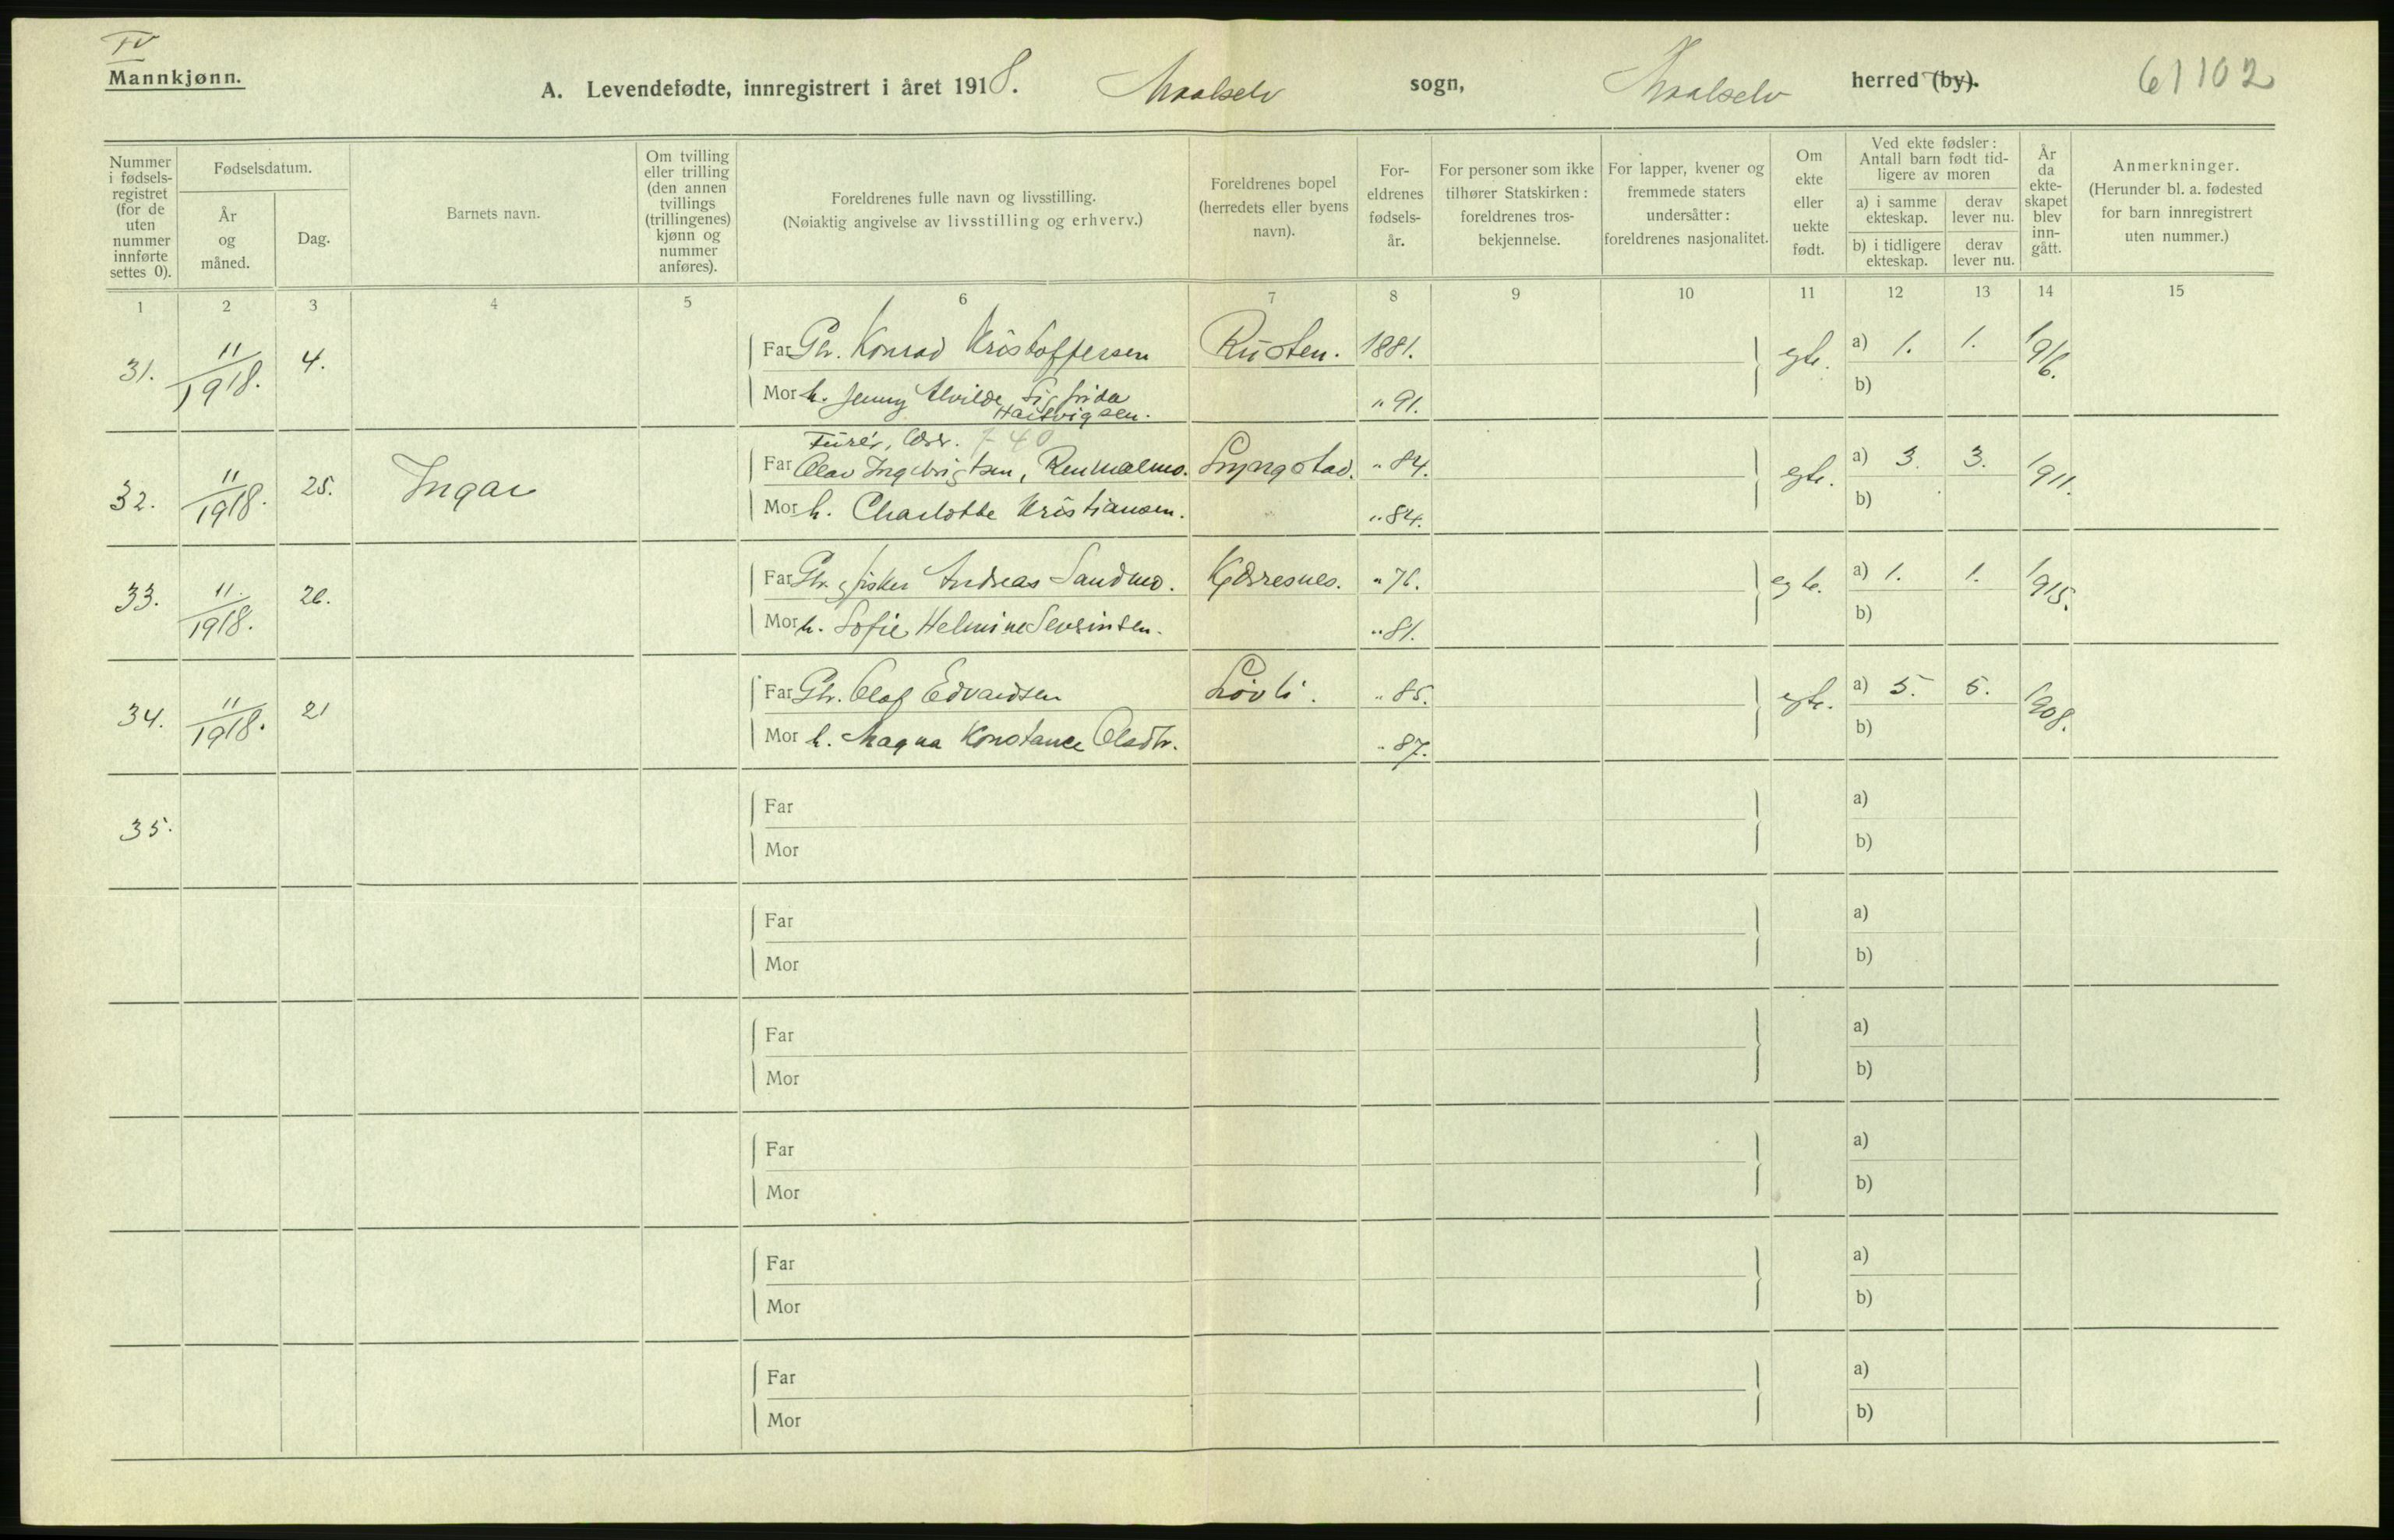 IV
Mannkjønn.
A. Levendefødte, innregistrert i året 1918. Maalselv sogn, Maalselv herred (by). 61102
Nummer i fødselsregistret (for de uten nummer innførte settes 0).
Fødselsdatum.
År og måned.
Dag.
Barnets navn.
Om tvilling eller trilling (den annen tvillings (trillingenes) kjønn og nummer anføres).
Foreldrenes fulle navn og livsstilling.
(Nøiaktig angivelse av livsstilling og erhverv.)
Foreldrenes bopel (herredets eller byens navn).
For-eldrenes fødsels-år.
For personer som ikke tilhører Statskirken: foreldrenes tros-bekjennelse.
For lapper, kvener og fremmede staters undersåtter: foreldrenes nasjonalitet.
Om ekte eller uekte født.
Ved ekte fødsler: Antall barn født tid-ligere av moren
a) i samme ekteskap.
derav lever nu.
b) i tidligere ekteskap.
derav lever nu.
År da ekte-skapet blev inn-gått.
Anmerkninger.
(Herunder bl. a. fødested for barn innregistrert uten nummer.)
1 2 3 4 5 6 7 8 9 10 11 12 13 14 15
31. 11/1918. 4. Far Gbr. Konrad Kristoffersen Rusten. 1881. egte. a) 1. 1. 1916.
Mor h. Jenny Alvilde Sigfrida Hartvigsen. " 91. b)
Furér, 40
32. 11/1918. 25. Ingar Far Olav Ingebrigtsen, Renmælmo. Lyngstad. " 84. egte. a) 3. 3. 1911.
Mor h. Charlotte Kristiansen. " 84. b)
33. 11./1918. 26. Far Gbr. fisker Andreas Sandmo. Kjærresnes. " 76. egte. a) 1. 1. 1915.
Mor h. Sofie Helmine Sevrinsen. " 81. b)
34. 11/1918. 21 Far Gbr. Olaf Edvardsen Løvli. " 85. egte. a) 5. 5. 1908.
Mor h. Magna Konstance Olsdtr. " 87. b)
35. Far a)
Mor b)
Far a)
Mor b)
Far a)
Mor b)
Far a)
Mor b)
Far a)
Mor b)
Far a)
Mor b)